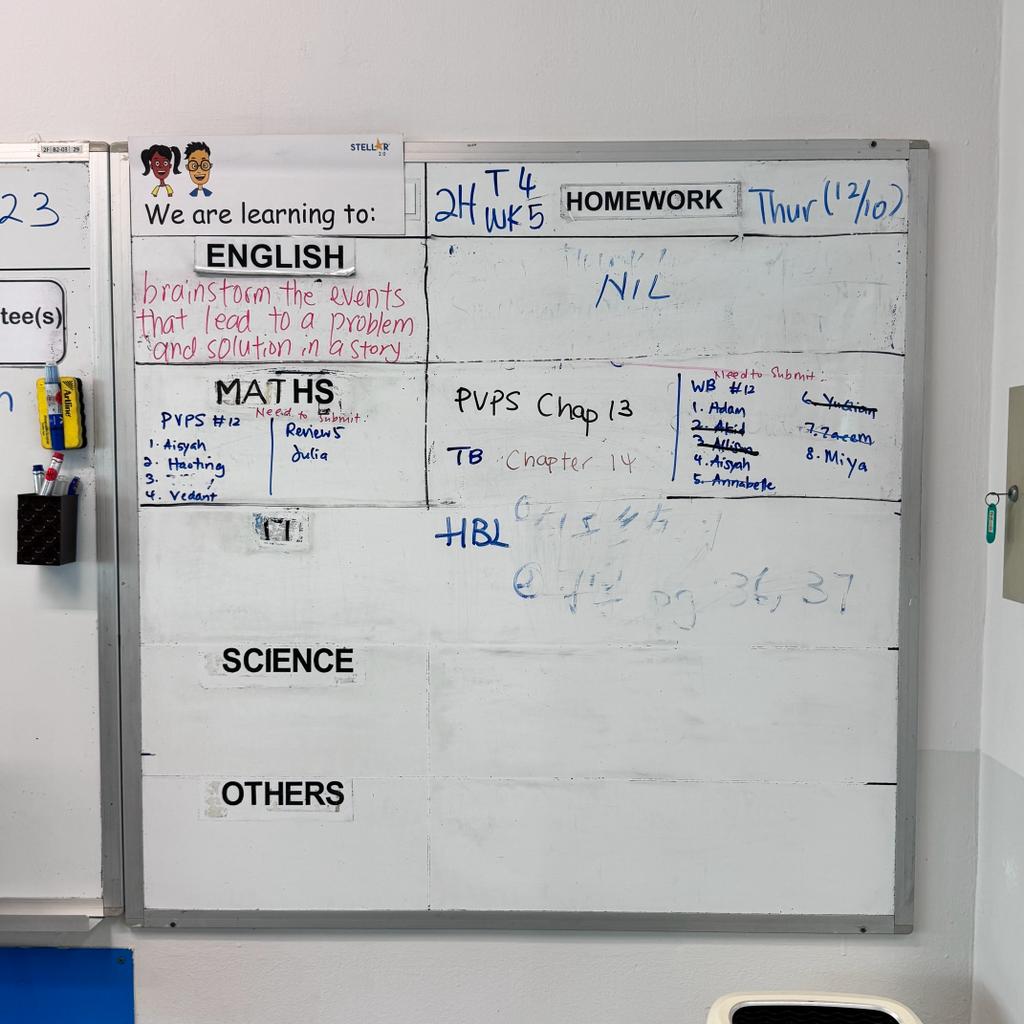 2F B2-03 29
23
tee(s)
STELLAR
2.0
We are learning to:
2H T4 WK5
HOMEWORK
Thur (12/10)
ENGLISH
brainstorm the events
that lead to a problem
and solution in a story
NIL
MATHS
Need to Submit:
PVPS #12
1. Aisyah
2. Haoting
3.
4. Vedant
Review 5
Julia
PVPS Chap 13
TB Chapter 14
Need to Submit:
WB #12
1. Adam
2. Akid
3. Allison
4. Aisyah
5. Annabelle
6. YuQian
7. Zaeem
8. Miya
HBL
pg 36, 37
SCIENCE
OTHERS
Artline